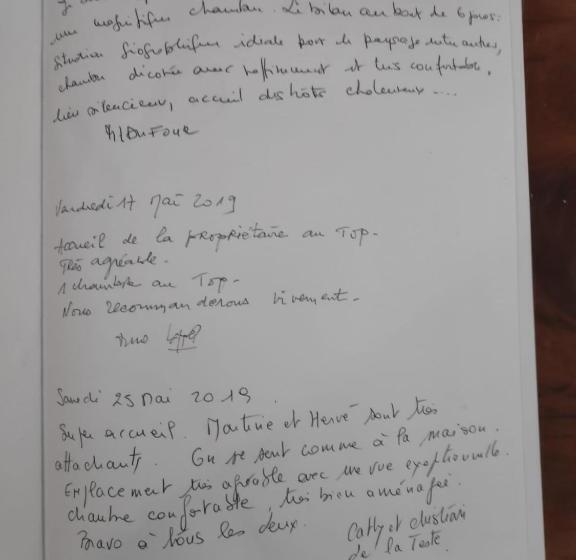 une magnifique chambre. Le bilan au bout de 6 jours:
situation géographique idéale pour le paysage entre autres,
chambre décorée avec raffinement et très confortable,
lieu silencieux, accueil des hôtes chaleureux ....
Vendredi 17 Mai 2019
Accueil de la propriétaire au Top.
Très agréable.
1 chambre au Top.
Nous recommanderons vivement.
Samedi 25 Mai 2019.
Super accueil. Martine et Hervé sont très
attachants. On se sent comme à la maison.
Emplacement très agréable avec une vue exeptionnelle.
chambre confortable, très bien aménagée.
Bravo à tous les deux.
Cathy et christian
de la Teste